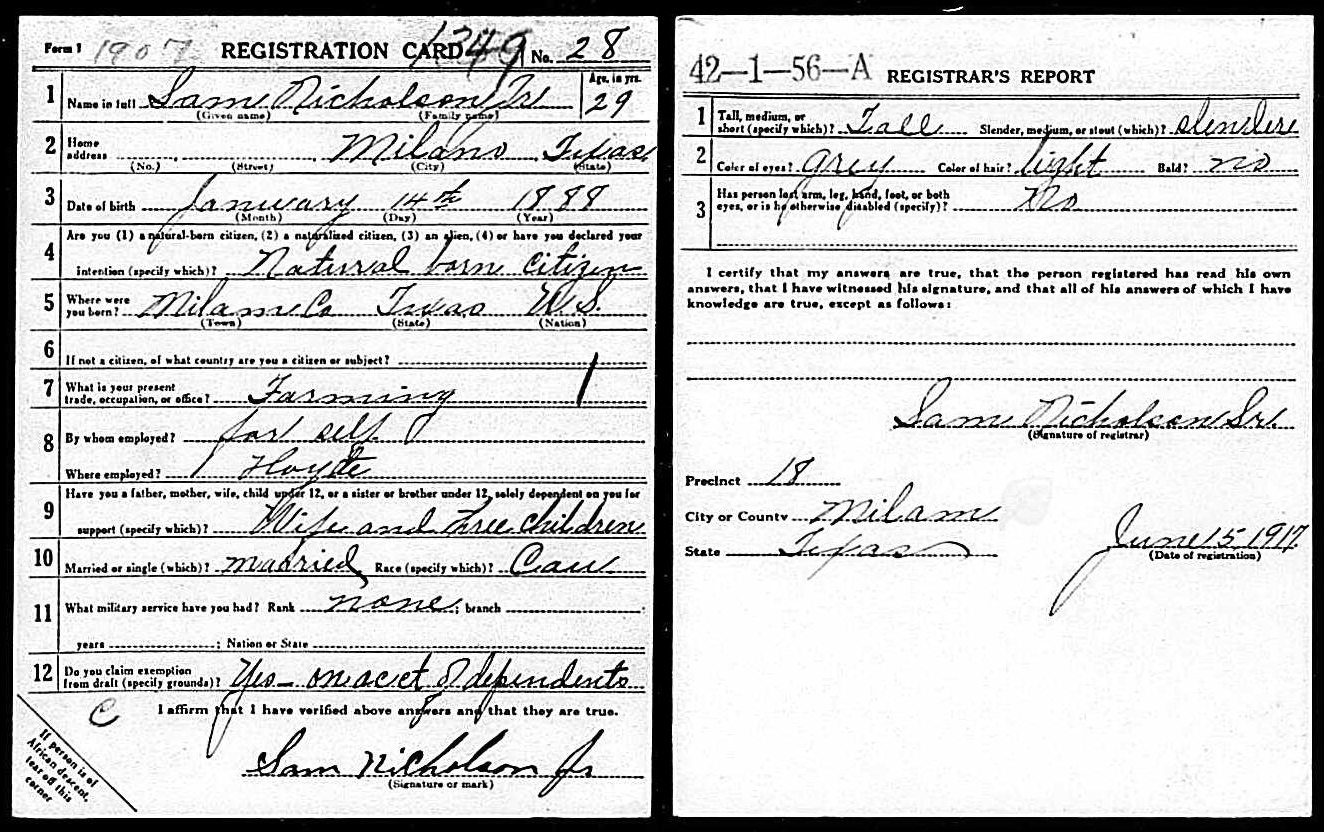 Form 1 1907 REGISTRATION CARD 1349 No. 28
1 Name in full Sam Nicholson Jr Age, in yrs. 29
(Given name) (Family name)
2 Home address Milano Texas
(No.) (Street) (City) (State)
3 Date of birth January 14th 1888
(Month) (Day) (Year)
4 Are you (1) a natural-born citizen, (2) a naturalized citizen, (3) an alien, (4) or have you declared your
intention (specify which)? Natural born citizen
5 Where were you born? Milam Co Texas U.S.
(Town) (State) (Nation)
6 If not a citizen, of what country are you a citizen or subject?
7 What is your present trade, occupation, or office? Farming
8 By whom employed? for self
Where employed? Hoyte
9 Have you a father, mother, wife, child under 12, or a sister or brother under 12, solely dependent on you for
support (specify which)? Wife and three children
10 Married or single (which)? married Race (specify which)? Cau
11 What military service have you had? Rank none; branch
years ; Nation or State
12 Do you claim exemption from draft (specify grounds)? Yes - on acct of dependents
C I affirm that I have verified above answers and that they are true.
Sam Nicholson Jr
(Signature or mark)
If person is of
African descent,
tear off this
corner
42-1-56-A REGISTRAR'S REPORT
1 Tall, medium, or short (specify which)? Tall Slender, medium, or stout (which)? slender
2 Color of eyes? grey Color of hair? light Bald? no
3 Has person lost arm, leg, hand, foot, or both
eyes, or is he otherwise disabled (specify)? No
I certify that my answers are true, that the person registered has read his own
answers, that I have witnessed his signature, and that all of his answers of which I have
knowledge are true, except as follows:
Sam Nicholson Sr.
(Signature of registrar)
Precinct 18
City or County Milam
State Texas
June 15 1917
(Date of registration)